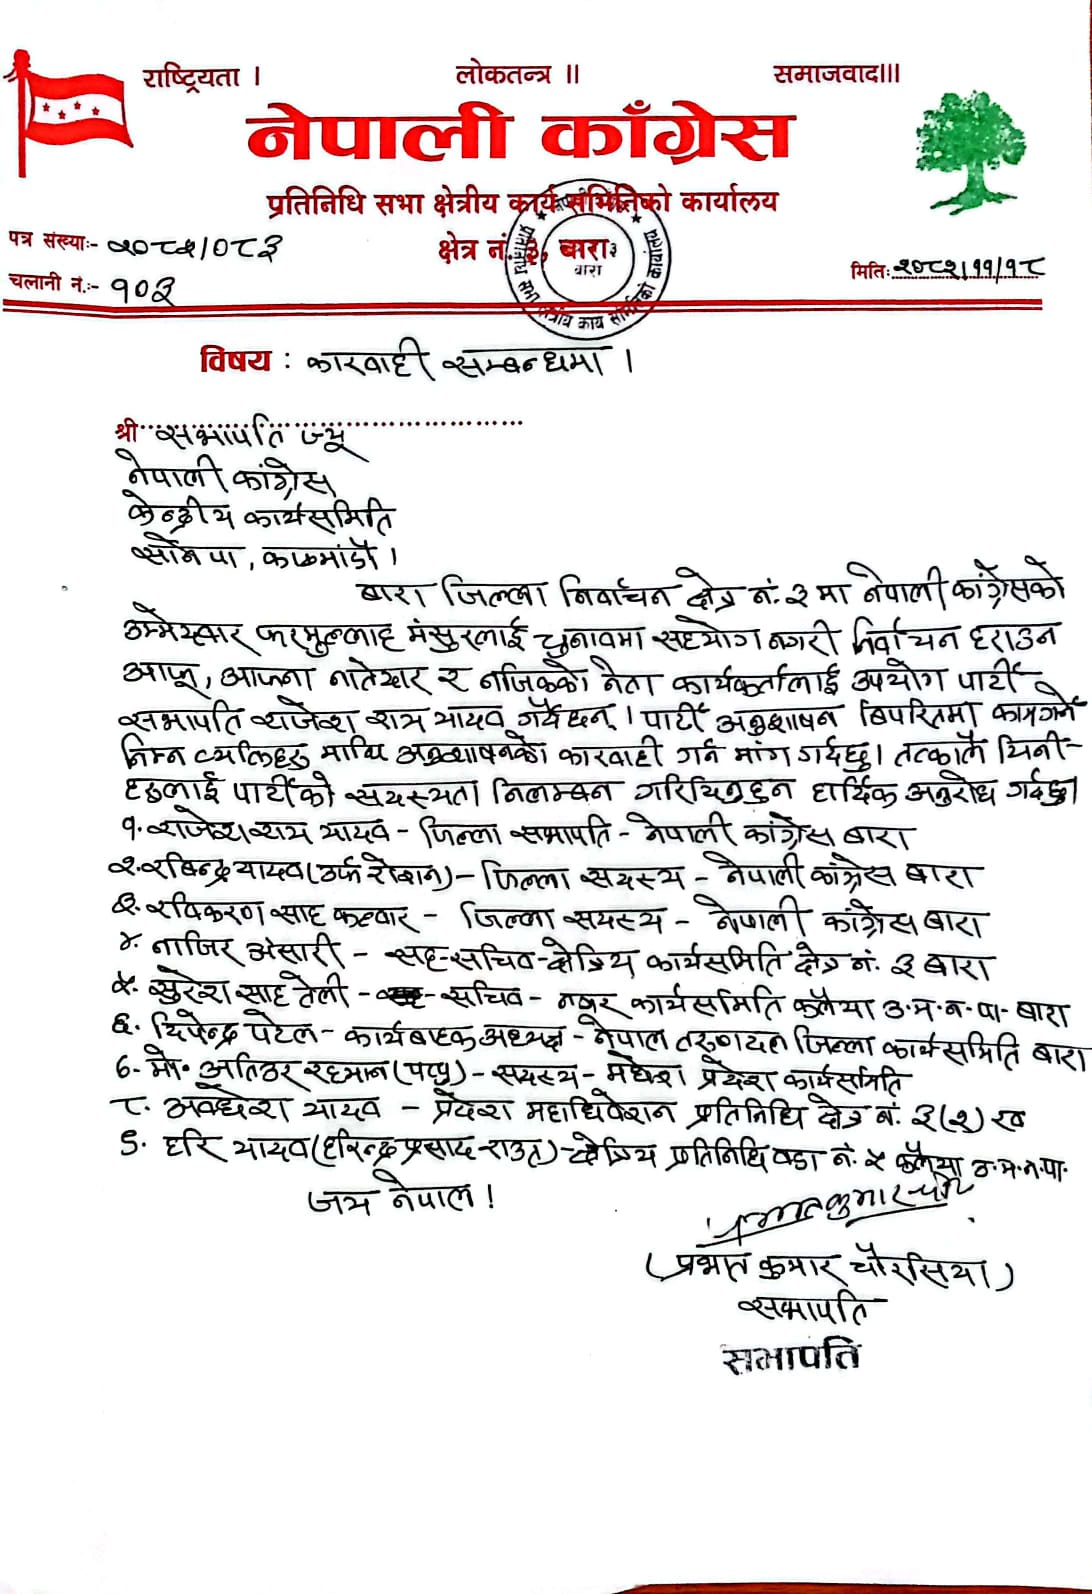 राष्ट्रियता । लोकतन्त्र ॥ समाजवाद॥।
नेपाली काँग्रेस
प्रतिनिधि सभा क्षेत्रीय कार्य समितिको कार्यालय
क्षेत्र नं. ३, बारा
पत्र संख्याः- २०८२/०८३
चलानी नं.ः- १०३
मितिः २०८२/११/१८
विषय : कारवाही सम्बन्धमा ।
श्री सभापति ज्यू
नेपाली कांग्रेस,
केन्द्रीय कार्यसमिति
सानेपा, काठमांडौ ।
बारा जिल्ला निर्वाचन क्षेत्र नं. ३ मा नेपाली कांग्रेसको
उम्मेदवार फरमुल्लाह मंसुरलाई चुनावमा सहयोग नगरी निर्वाचन हराउन
आफू, आफ्ना नातेदार र नजिकको नेता कार्यकर्तालाई उपयोग पार्टी
सभापति राजेश राय यादव गर्दैछन् । पार्टी अनुशाषन बिपरितमा काम गर्ने
निम्न व्यक्तिहरु माथि अनुशाषनको कारवाही गर्न मांग गर्दछु। तत्कालै यिनी-
हरुलाई पार्टीको सदस्यता निलम्बन गरिदिनुहुन हार्दिक अनुरोध गर्दछु।
१. राजेश राय यादव - जिल्ला सभापति - नेपाली कांग्रेस बारा
२. रबिन्द्र यादव (उर्फ रोशन) - जिल्ला सदस्य - नेपाली कांग्रेस बारा
३. रविकरण साह कलवार - जिल्ला सदस्य - नेपाली कांग्रेस बारा
४. नाजिर अंसारी - सह-सचिव - क्षेत्रिय कार्यसमिति क्षेत्र नं. ३ बारा
५. सुरेश साह तेली - सचिव - नगर कार्यसमिति कलैया उ.म.न.पा. बारा
६. दिपेन्द्र पटेल - कार्यबाहक अध्यक्ष - नेपाल तरुणदल जिल्ला कार्यसमिति बारा
७. मो. अतिउर रहमान (पप्पु) - सदस्य - मधेश प्रदेश कार्यसमिति
८. अवधेश यादव - प्रदेश महाधिवेशन प्रतिनिधि क्षेत्र नं. ३(२) ख
९. हरि यादव (हरिन्द्र प्रसाद राउत) - क्षेत्रिय प्रतिनिधि वडा नं. ५ कलैया उ.म.न.पा.
जय नेपाल !
(प्रभात कुमार चौरसिया)
सभापति
सभापति